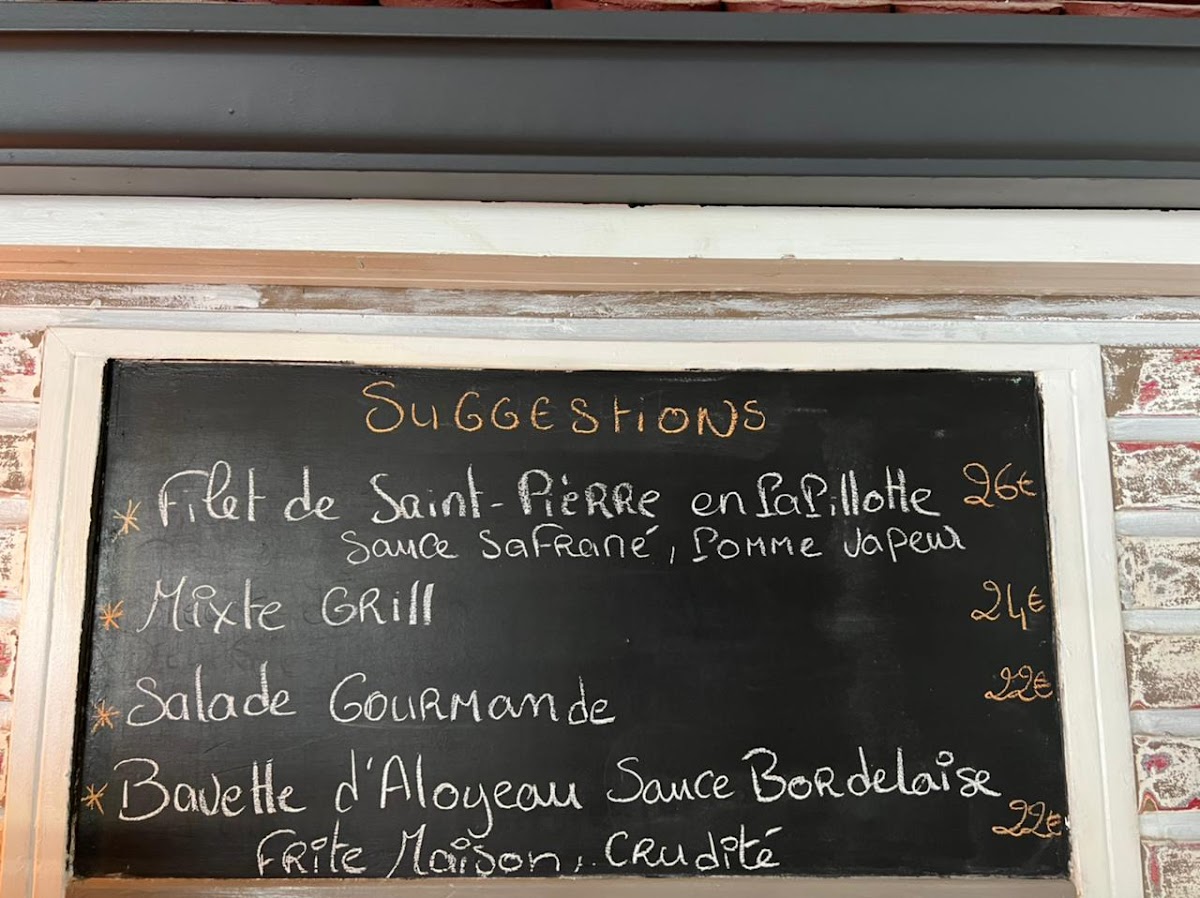 SUGGESTIONS
* Filet de Saint-PièRRe en PaPillotte 26€
Sauce SaFRané, Pomme Vapeur
* Mixte GRill 24€
* Salade GouRMande 22€
* Bavette d'Aloyeau Sauce BoRdelaise
22€
FRite Maison, CRudité